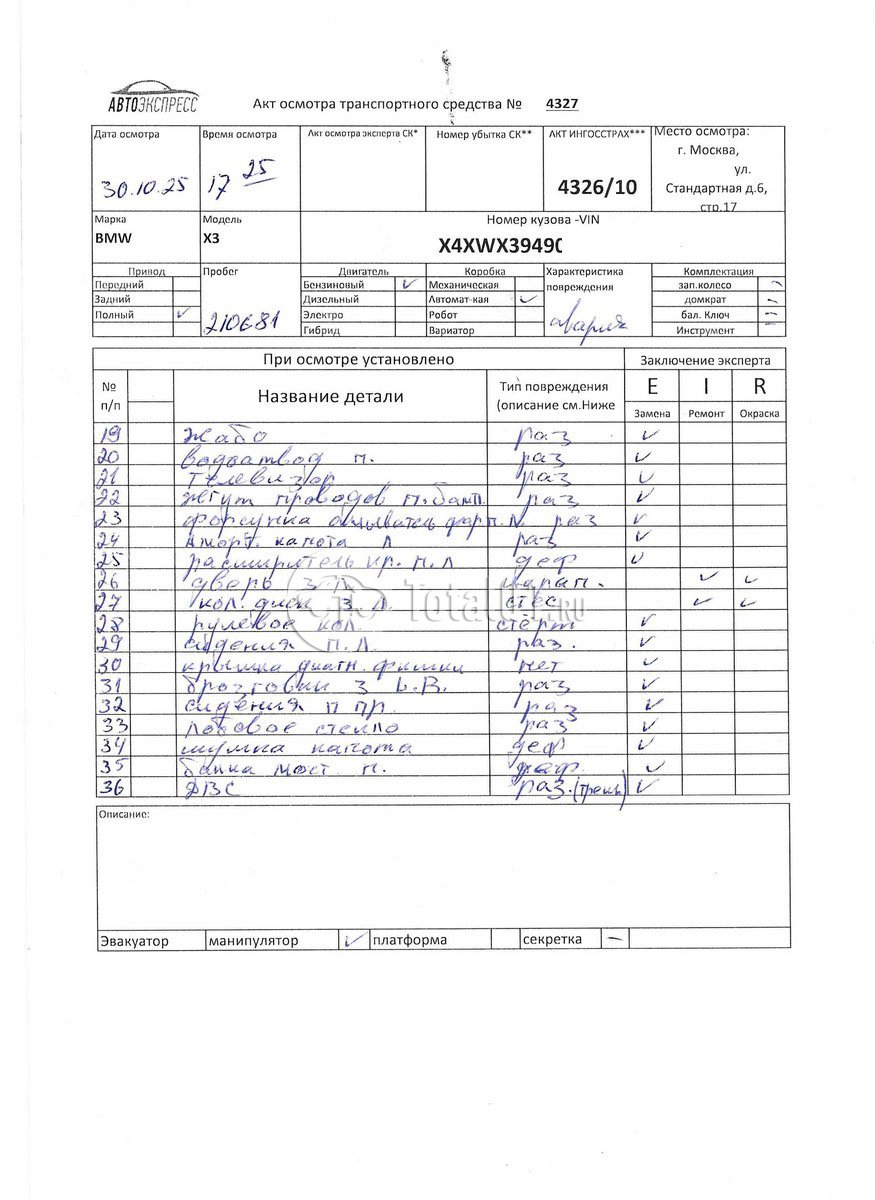 АВТОЭКСПРЕСС
Акт осмотра транспортного средства № 4327
Дата осмотра Время осмотра Акт осмотра эксперта СК* Номер убытка СК** АКТ ИНГОССТРАХ*** Место осмотра:
г. Москва,
ул.
30.10.25 17 25 4326/10 Стандартная д.6,
стр.17
Марка Модель Номер кузова -VIN
BMW X3 X4XWX39490
Привод Пробег Двигатель Коробка Характеристика Комплектация
Передний Бензиновый Механическая повреждения зап.колесо
Задний Дизельный Автомат-кая домкрат
Полный 210681 Электро Робот авария бал. Ключ
Гибрид Вариатор Инструмент
При осмотре установлено Заключение эксперта
№ Название детали Тип повреждения E I R
п/п (описание см.Ниже Замена Ремонт Окраска
19 жабо раз
20 водоотвод п. раз
21 телевизор раз
22 жгут проводов п.бамп. раз
23 форсунка фар п.л. раз
24 аморт. капота л раз
25 расширитель кр. п.л деф
26 дверь з л. царап.
27 кол. диск з.л. стес
28 рулевое кол. стерт
29 сидения п.л. раз.
30 крышка диагн. фишки нет
31 з раз
32 сидения п пр. раз
33 лобовое стекло раз
34 шумка капота деф
35 п. деф.
36 ДВС раз.
TotalCar.RU
Описание:
Эвакуатор манипулятор платформа секретка